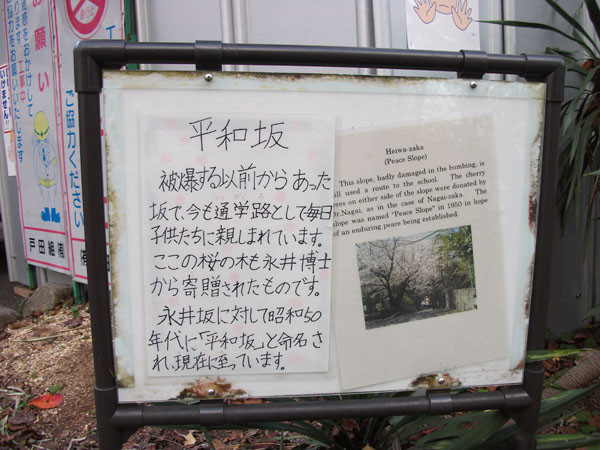 平和坂
被爆する以前からあった
坂で、今も通学路として毎日
子供たちに親しまれています。
ここの桜の木も永井博士
から寄贈されたものです。
永井坂に対して昭和50
年代に「平和坂」と命名さ
れ、現在に至っています。
Heiwa-zaka
(Peace Slope)
This slope, badly damaged in the bombing, is
ll used a route to the school. The cherry
ees on either side of the slope were donated by
Dr.Nagai, as in the case of Nagai-zaka. The
slope was named "Peace Slope" in 1950 in hope
of an enduring peace being established.
お願い
ご協力ください
戸田組